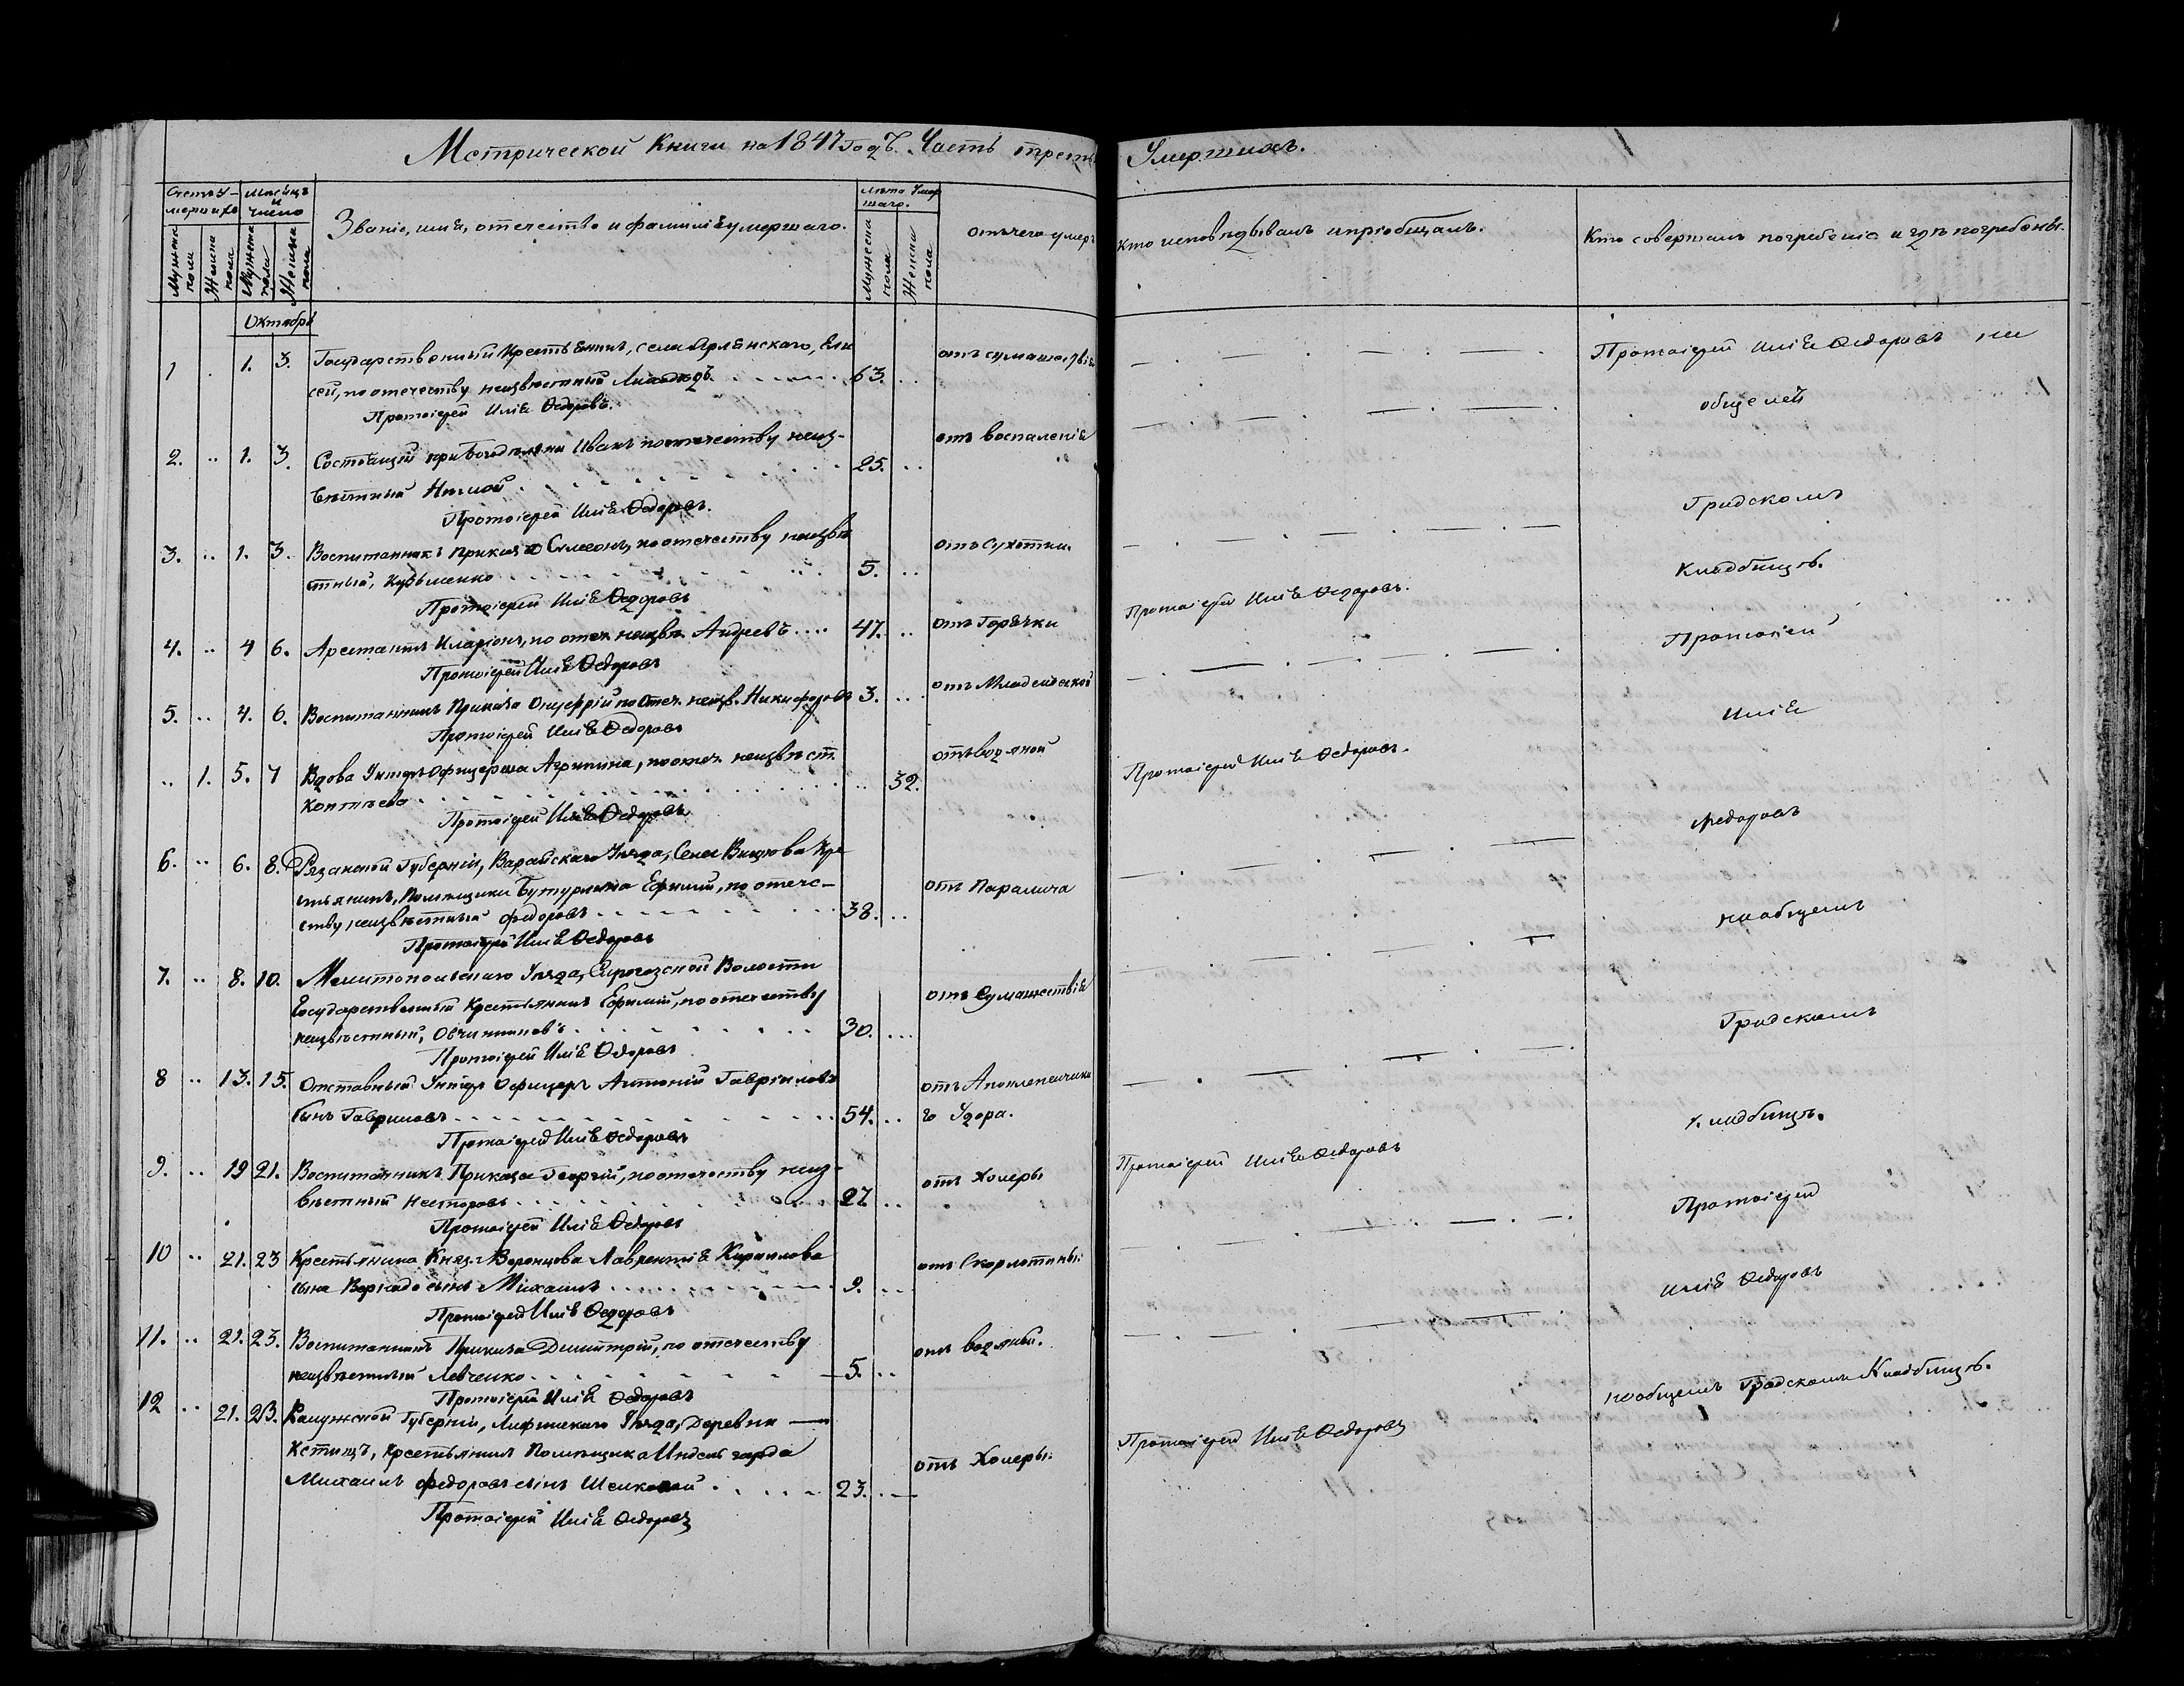 Метрической Книги на 1847 Годъ. Часть треть Умершихъ.
Счетъ у- мершихъ
Мѣсяцъ и число
Званіе, имя, отечество и фамилія умершаго.
Лѣта Умершаго.
отъ чего умеръ
кто исповѣдывалъ и пріобщалъ.
Кто совершалъ погребеніе и гдѣ погребены.
Мужеска пола
Женска пола
Мужеска пола
Женска пола
Мужеска пола
Женска пола
Октябрь
1 1. 3. Государственный Крестьянинъ, села Ели
сей, по отечеству неизвѣстный 63. отъ сумашествія
Протоіерей Илія Ѳедоровъ.
2. 1. 3. Состоящій при богодѣльни Иванъ по отечеству неиз-
вѣстный Нѣмой 25. отъ воспаленія
Протоіерей Илія Ѳедоровъ.
3. 1. 3. Воспитанникъ приказа Симеонъ, по отечеству неизвѣ
стный, Кузьменко 5. отъ Сухотки.
Протоіерей Илія Ѳедоровъ
4. 4 6. Арестантъ Иларіонъ, по отеч. неизвѣ. Андреевъ 47. отъ Горячки Протоіерей Илія Ѳедоровъ.
Протоіерей Илія Ѳедоровъ
5. 4. 6. Воспитанникъ Приказа Онуфрій по отеч. неизв. Никифоровъ 3. отъ Младенческой
Протоіерей Илія Ѳедоровъ
1. 5. 7 Вдова Унтеръ Офицерша Агрипина, по отеч. неизвѣст.
Коптѣева 32. отъ водяной Протоіерей Илія Ѳедоровъ.
Протоіерей Илія Ѳедоровъ
6. 6. 8. Рязанской Губерніи, Уѣзда, Села Кре
стьянинъ, Помѣщика Бутурлина Ефимій, по отече-
ству неизвѣстный Федоровъ 38. отъ Паралича
Протоіерей Илія Ѳедоровъ
7. 8. 10. Мелитопольскаго Уѣзда, Сирогозской Волости
Государственный Крестьянинъ Ефимій, по отечеству
неизвѣстный, Овчинниковъ 30. отъ Сумашествія
Протоіерей Илія Ѳедоровъ
8 13. 15. Отставный Унтеръ Офицеръ Антоній Гавріиловъ
сынъ Гавриловъ 54. отъ Апоплексическа
го Удара.
Протоіерей Илія Ѳедоровъ
9. 19 21. Воспитанникъ Приказа Георгій, по отечеству неиз-
вѣстный Несторовъ 27 отъ Холеры Протоіерей Илія Ѳедоровъ
Протоіерей Илія Ѳедоровъ
10 21. 23 Крестьянина Княз. Воронцова Лаврентія Кирилова
сына сынъ Михаилъ 9. отъ Скорлотины.
Протоіерей Илія Ѳедоровъ
11. 21. 23. Воспитанникъ Приказа Димитрій, по отечеству
неизвѣстный Левченко 5. отъ водяный.
Протоіерей Илія Ѳедоровъ
12 21. 23. Калужской Губерніи, Уѣзда, Деревни
Крестьянинъ Помѣщика
Михаилъ Федоровъ сынъ 23. отъ Холеры. Протоіерей Илія Ѳедоровъ
Протоіерей Илія Ѳедоровъ
Протоіерей Илія Ѳедоровъ на
общемъ
Градскомъ
Кладбищѣ.
Протоіерей
Илія
Федоровъ
на общемъ
Градскомъ
кладбищѣ.
Протоіерей
Илія Ѳедоровъ
на общемъ Градскомъ Кладбищѣ.